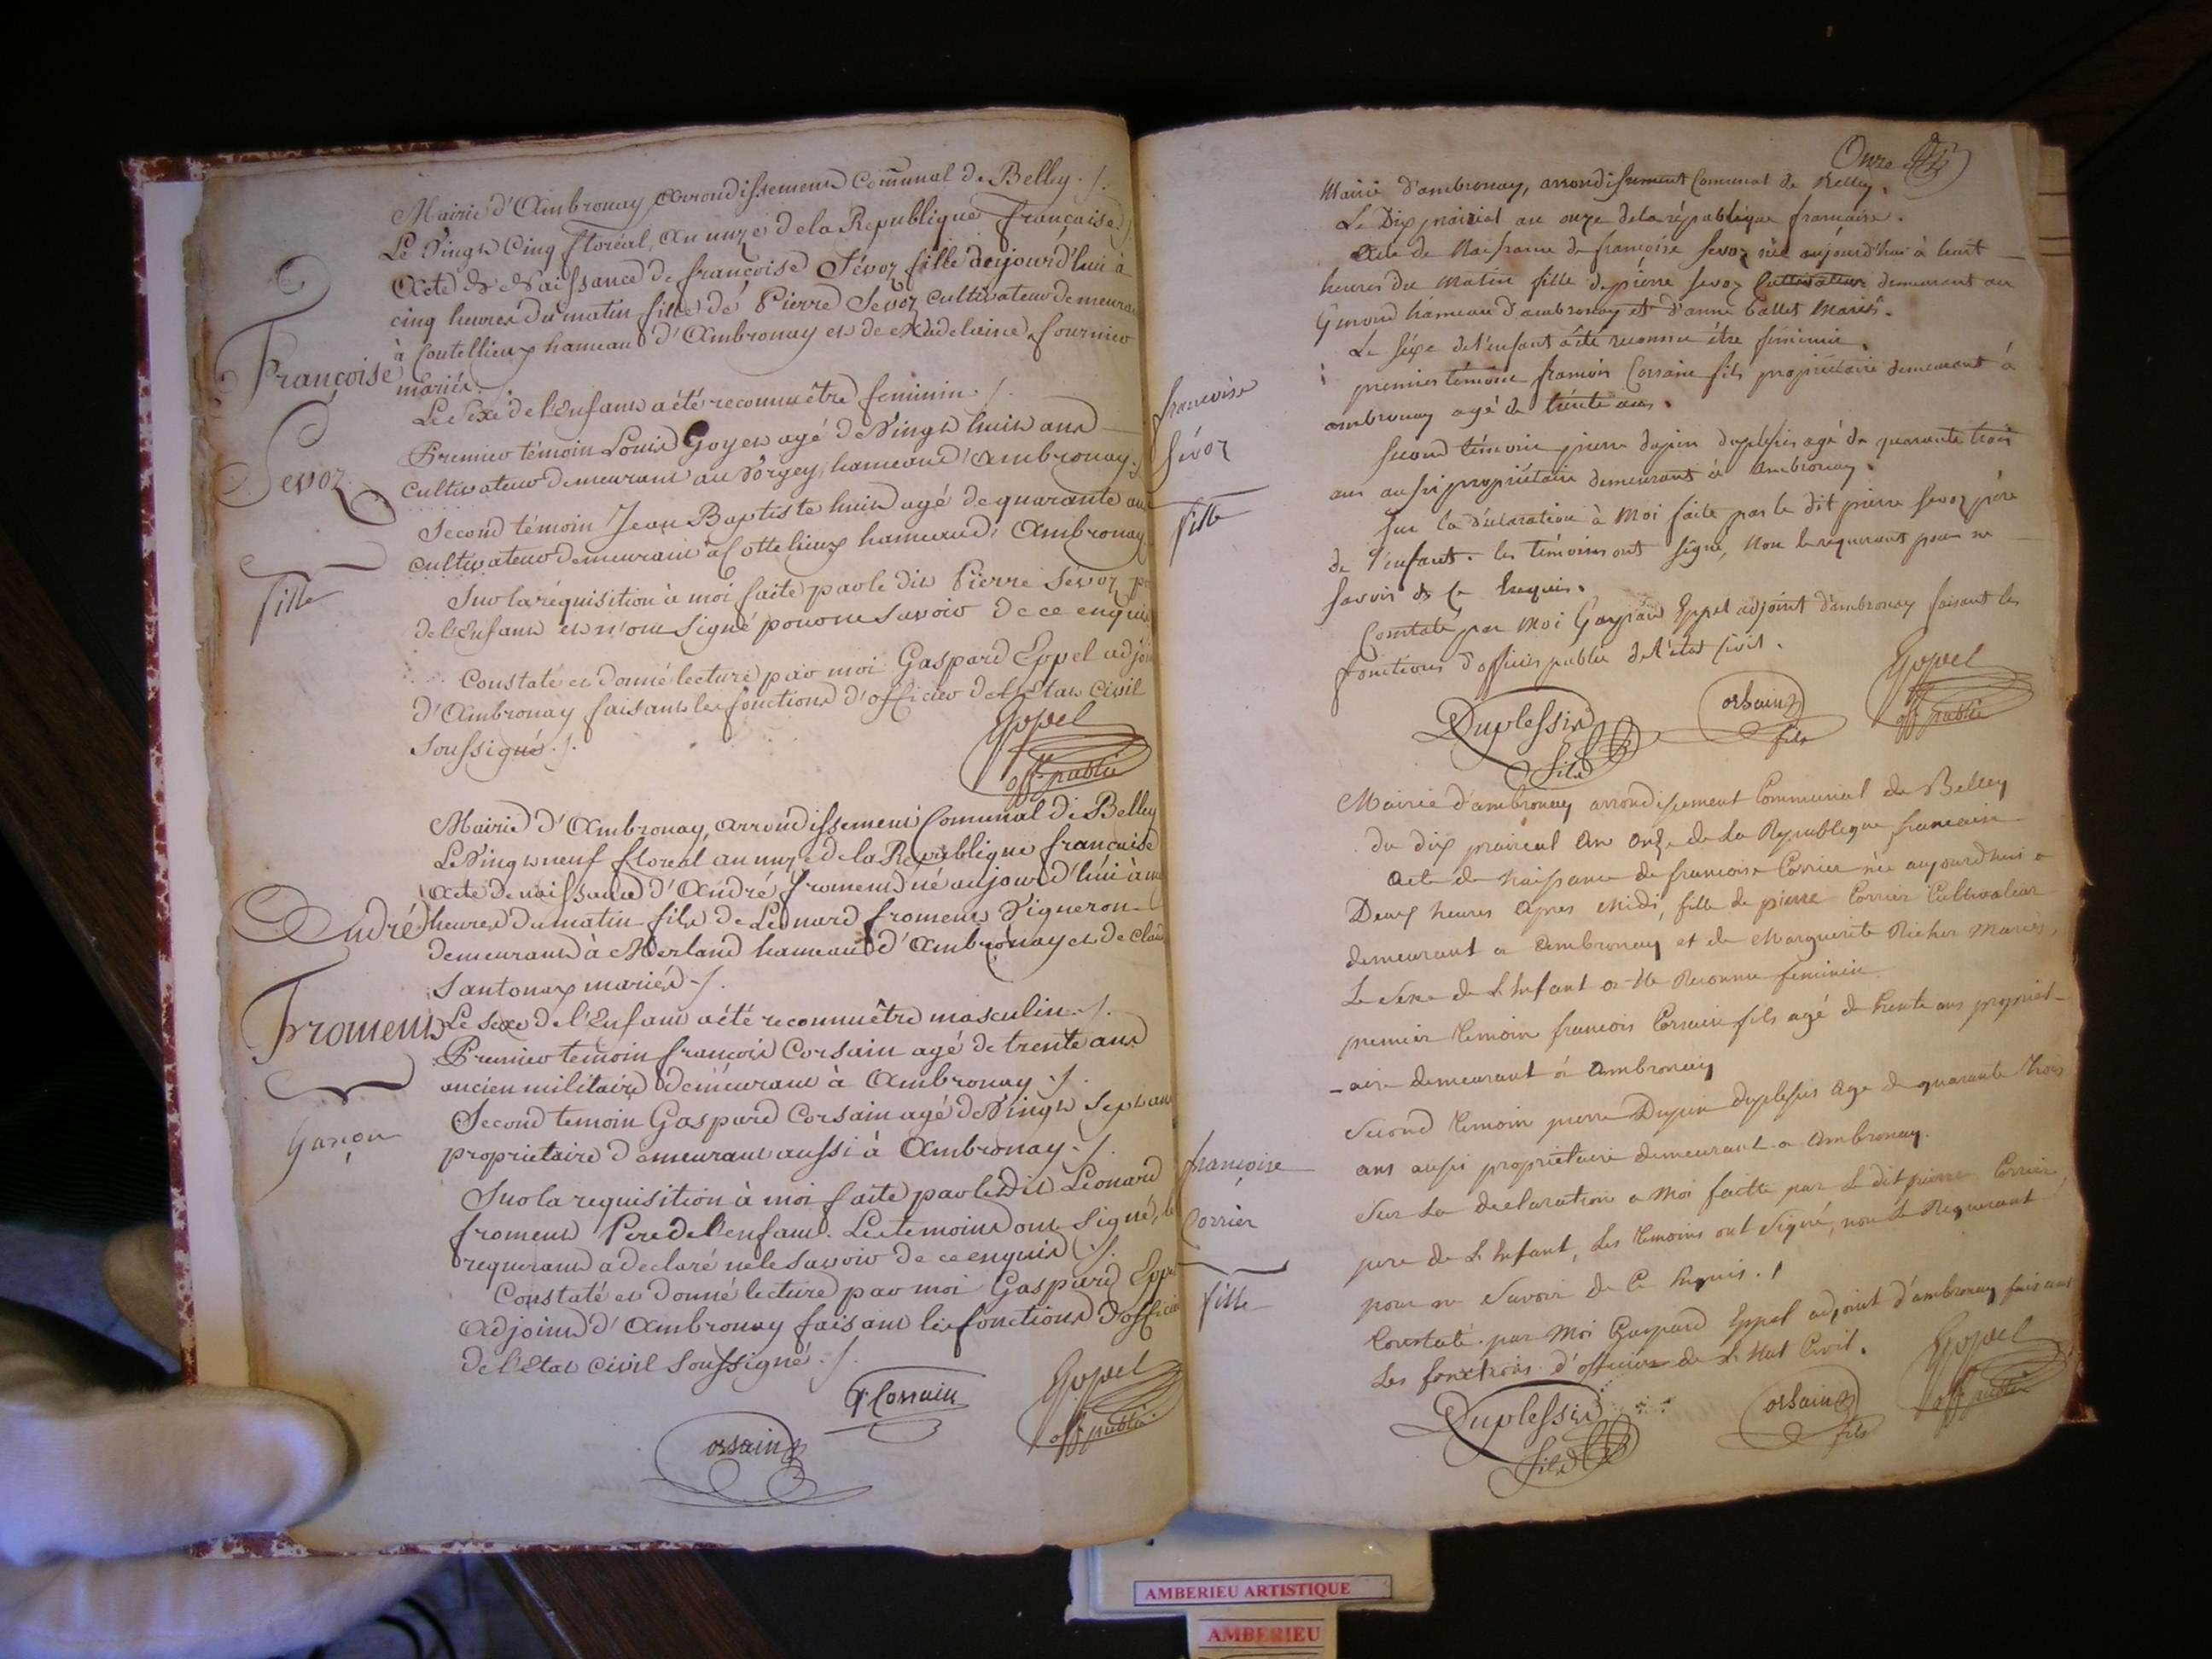 Mairie d'Ambronay arrondissement Communal de Belley ./.
Le Vingt Cinq floréal, an unze de la Republique française ./.
Acte de Naissance de françoise Sévoz fille aujourd'hui à
cinq heures du matin fille de Pierre Sevoz cultivateur demeurant
à Coutellieux hameau d'Ambronay et de Madelaine fournier
mariés ./.
Françoise
Sevoz
fille
Le sexe de l'Enfant a été reconnu être feminin ./.
Premier témoin Louis Goyet agé de Vingt huit ans
cultivateur demeurant au Vorgey, hameau d'Ambronay ./.
Second témoin Jean Baptiste huit agé de quarante ans
cultivateur demeurant à Cottelieux hameau d'Ambronay
Sur la réquisition à moi faite par le dit Pierre Sevoz
de l'Enfant et n'ont Signé pour ne Savoir de ce enquis
Constaté et donné lecture par moi Gaspard Eppel adjoint
d'Ambronay faisant les fonctions d'officier de l'Etat Civil
Soussigné ./.
Eppel
off. public
Mairie d'Ambronay, arrondissement Comunal de Belley
Le Vingt neuf floreal an unze de la Republique française
Acte de naissance d'André froment né aujourd'hui à une
heures du matin fils de Léonard froment Vigneron
demeurant à Merland hameau d'Ambronay et de
Santonax mariés ./.
André
Froment
Garçon
Le sexe de l'Enfant a été reconnu être masculin ./.
Premier temoin françois Corsain agé de trente ans
ancien militaire demeurant à Ambronay ./.
Second temoin Gaspard Corsain agé de Vingt Sept ans
proprietaire demeurant aussi à Ambronay ./.
Sur la requisition à moi faite par le dit Léonard
froment Pere de l'enfant. Les temoins ont Signé, le
requerant a declaré ne le savoir de ce enquis ./.
Constaté et donné lecture par moi Gaspard Eppel
Adjoint d'Ambronay faisant les fonctions d'officier
de l'Etat Civil Soussigné ./.
G Corsain
Eppel
off. public
Corsain
Onze
Mairie d'ambronay, arrondissement Comunal de Belley.
Le Dix prairial an onze de la république francaise.
Acte de Naissance de françoise Sevoz née aujourd'hui à huit
heures du matin fille de pierre Sevoz Cultivateur demeurant au
Genoud hameau d'ambronay et d'anne Ballet Mariés.
Le sexe de l'enfant a été reconnu être féminin.
françoise
Sévoz
fille
premier témoin francois Corsain fils propriétaire demeurant à
ambronay agé de trente ans.
Second témoin pierre dupin duplessis agé de quarante trois
ans aussi propriétaire demeurant à Ambronay.
Sur la déclaration à Moi faite par le dit pierre Sevoz père
de l'enfant. les témoins ont signé, Non le requerant pour ne
savoir de ce Enquis.
Constaté par Moi Gaspard Eppel adjoint d'ambronay faisant les
fonctions d'officier public de l'état civil.
Duplessis
fils
Corsain
fils
Eppel
off public
Mairie d'ambronay arrondissement Communal de Belley
du dix prairial an onze de la Republique francaise
Acte de Naissance de francoise Corrier née aujourdhui a
Deux heures apres Midi, fille de pierre Corrier Cultivateur
demeurant a Ambronay et de Marguerite Richer Mariés,
Le Sexe de L'Enfant a été Reconnu feminin
premier temoin francois Corsain fils agé de trente ans propriet-
-aire demeurant à Ambronay
Second temoin pierre Dupin duplessis age de quarante trois
ans aussi proprietaire demeurant a Ambronay.
françoise
Corrier
fille
Sur La declaration a Moi faitte par Le dit pierre Corrier
pere de L'Enfant, Les temoins ont signé, non Le Requerant
pour ne Savoir de Ce Enquis . /
Constaté par Moi Gaspard Eppel adjoint d'ambronay faisant
Les fonctions d'officier de L'Etat Civil.
Duplessis
fils
Corsain
fils
Eppel
off public
AMBERIEU ARTISTIQUE
AMBERIEU